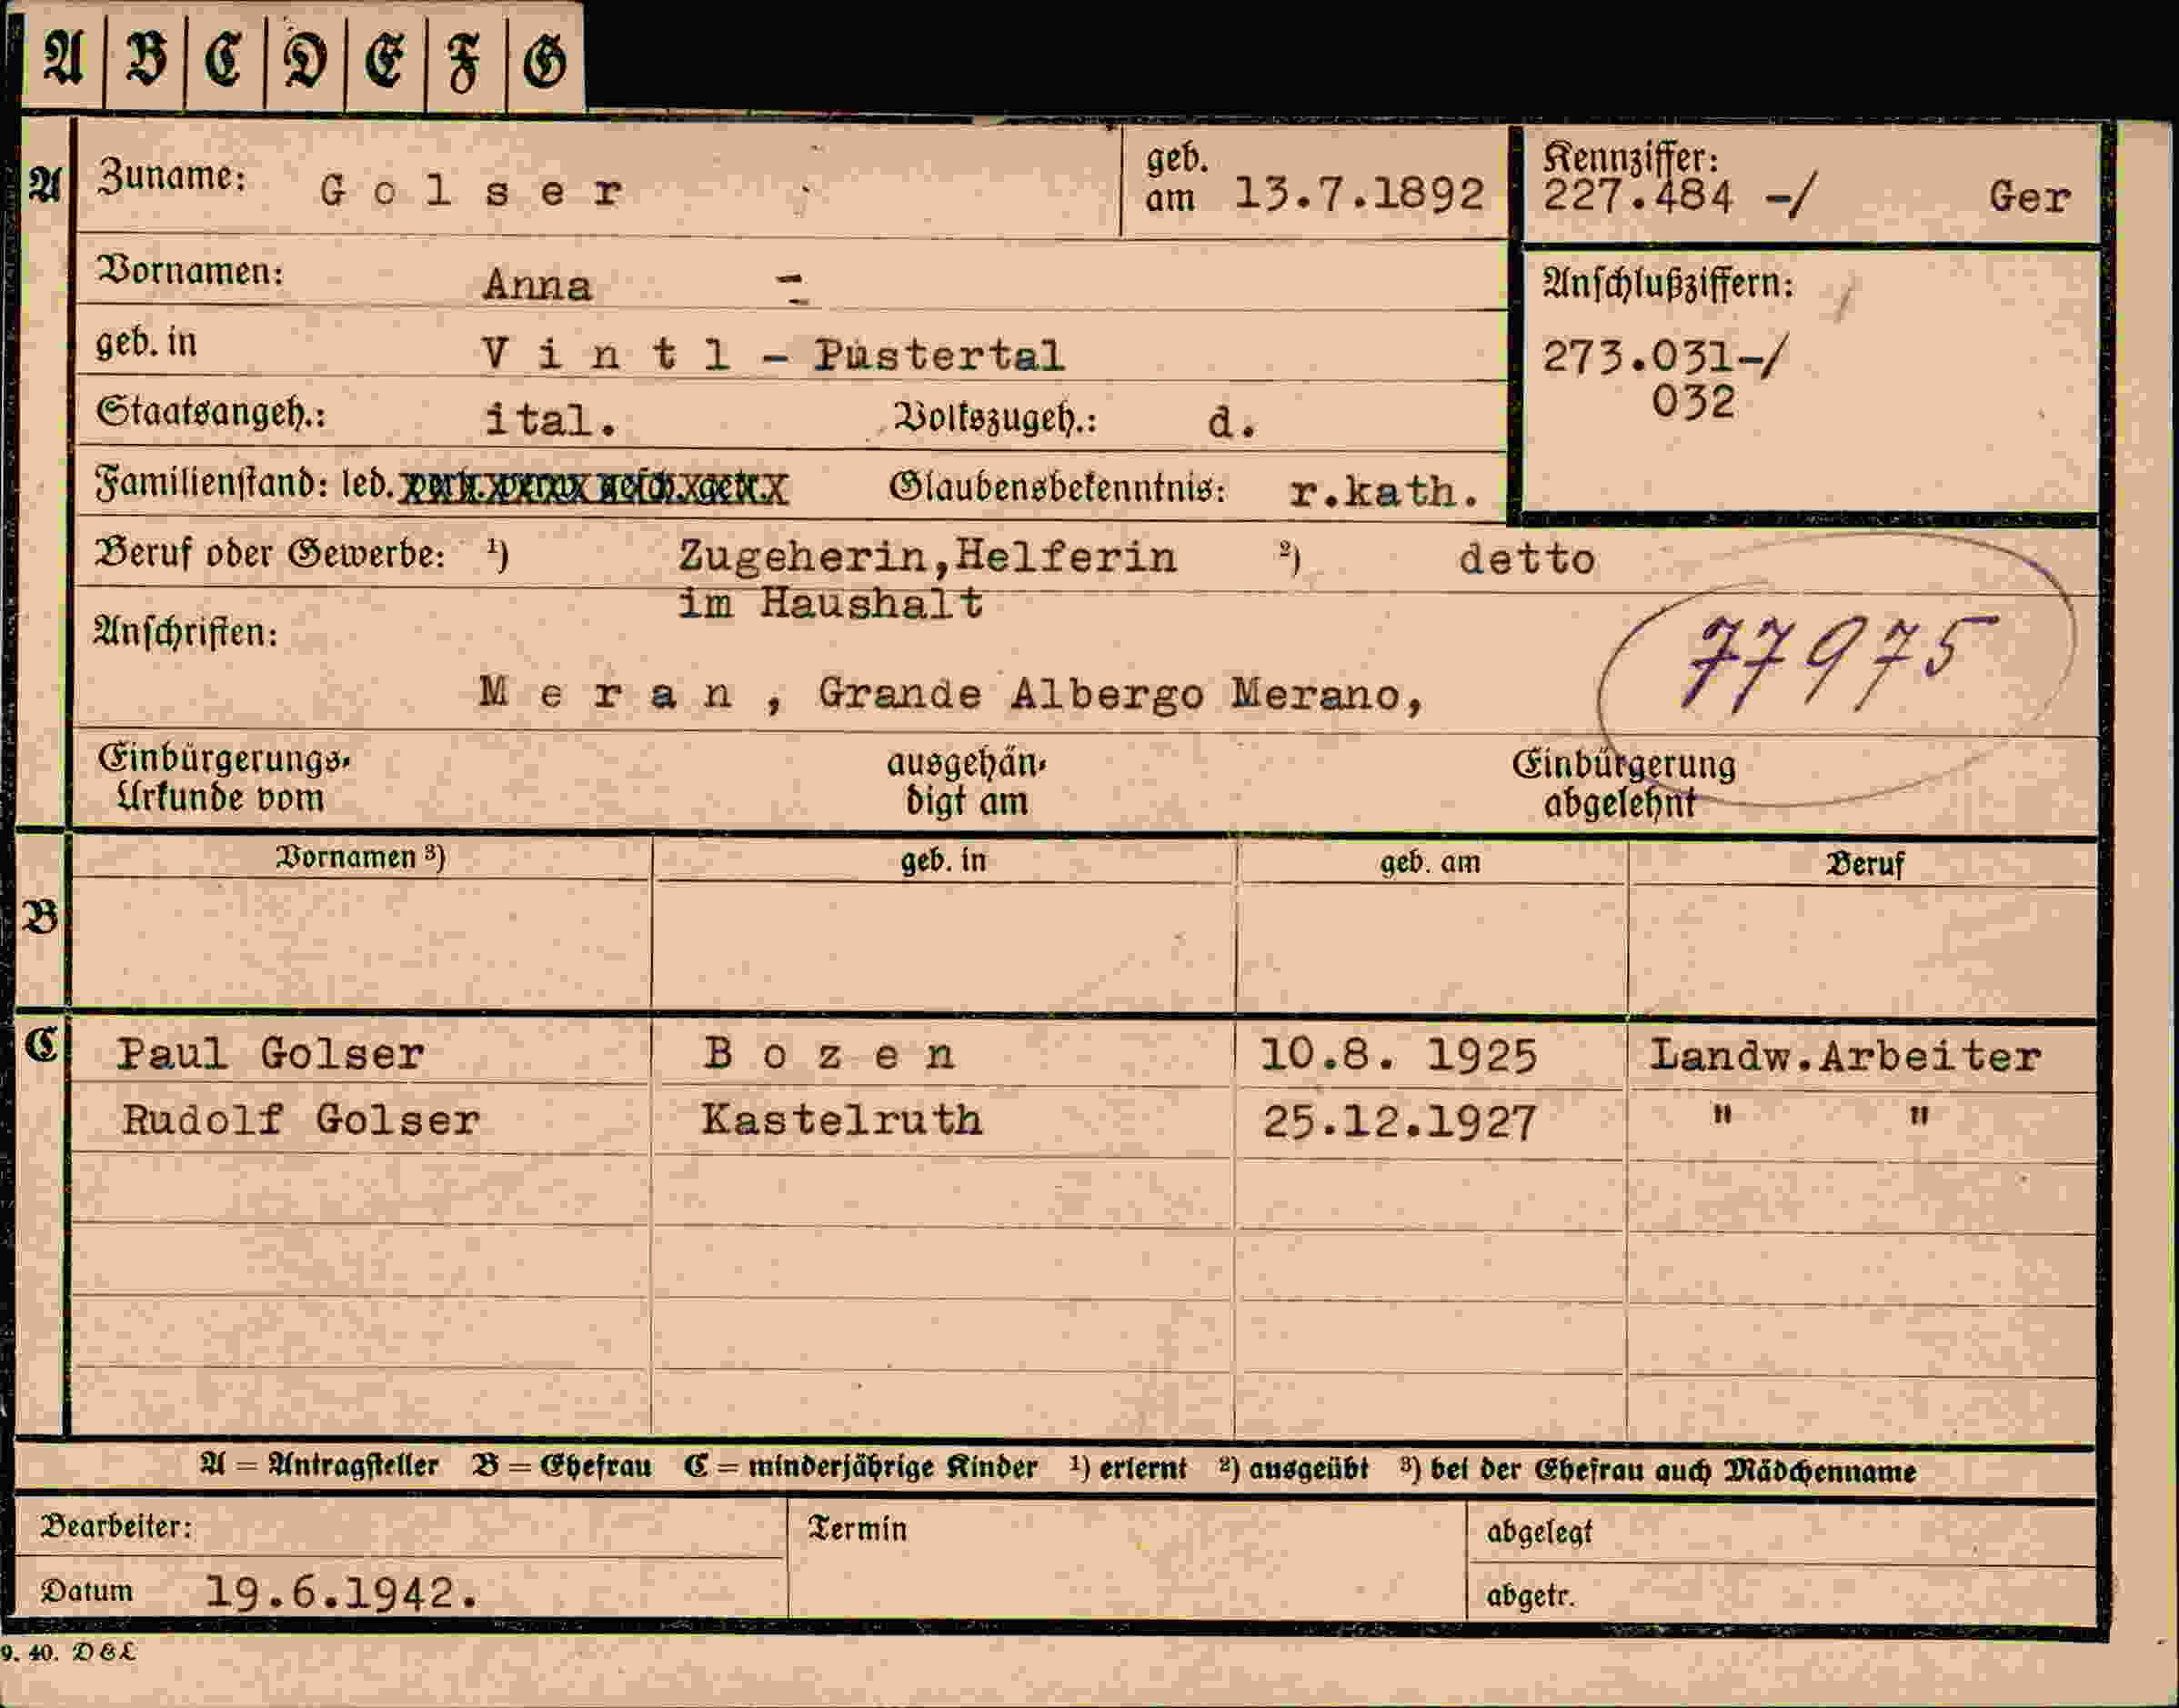 A B C D E F G
A Zuname: G o l s e r geb. am 13.7.1892 Kennziffer: 227.484 -/ Ger
Vornamen: Anna -
Anschlußziffern:
geb. in V i n t l - Pustertal 273.031-/
032
Staatsangeh.: ital. Volkszugeh.: d.
Familienstand: led. Glaubensbekenntnis: r.kath.
Beruf oder Gewerbe: ¹) Zugeherin,Helferin ²) detto
im Haushalt
Anschriften:
77975
M e r a n , Grande Albergo Merano,
Einbürgerungs- ausgehän- Einbürgerung
Urkunde vom digt am abgelehnt
Vornamen ³) geb. in geb. am Beruf
B
C Paul Golser B o z e n 10.8. 1925 Landw.Arbeiter
Rudolf Golser Kastelruth 25.12.1927 " "
A = Antragsteller B = Ehefrau C = minderjährige Kinder ¹) erlernt ²) ausgeübt ³) bei der Ehefrau auch Mädchenname
Bearbeiter: Termin abgelegt
Datum 19.6.1942. abgetr.
9. 40. D&L